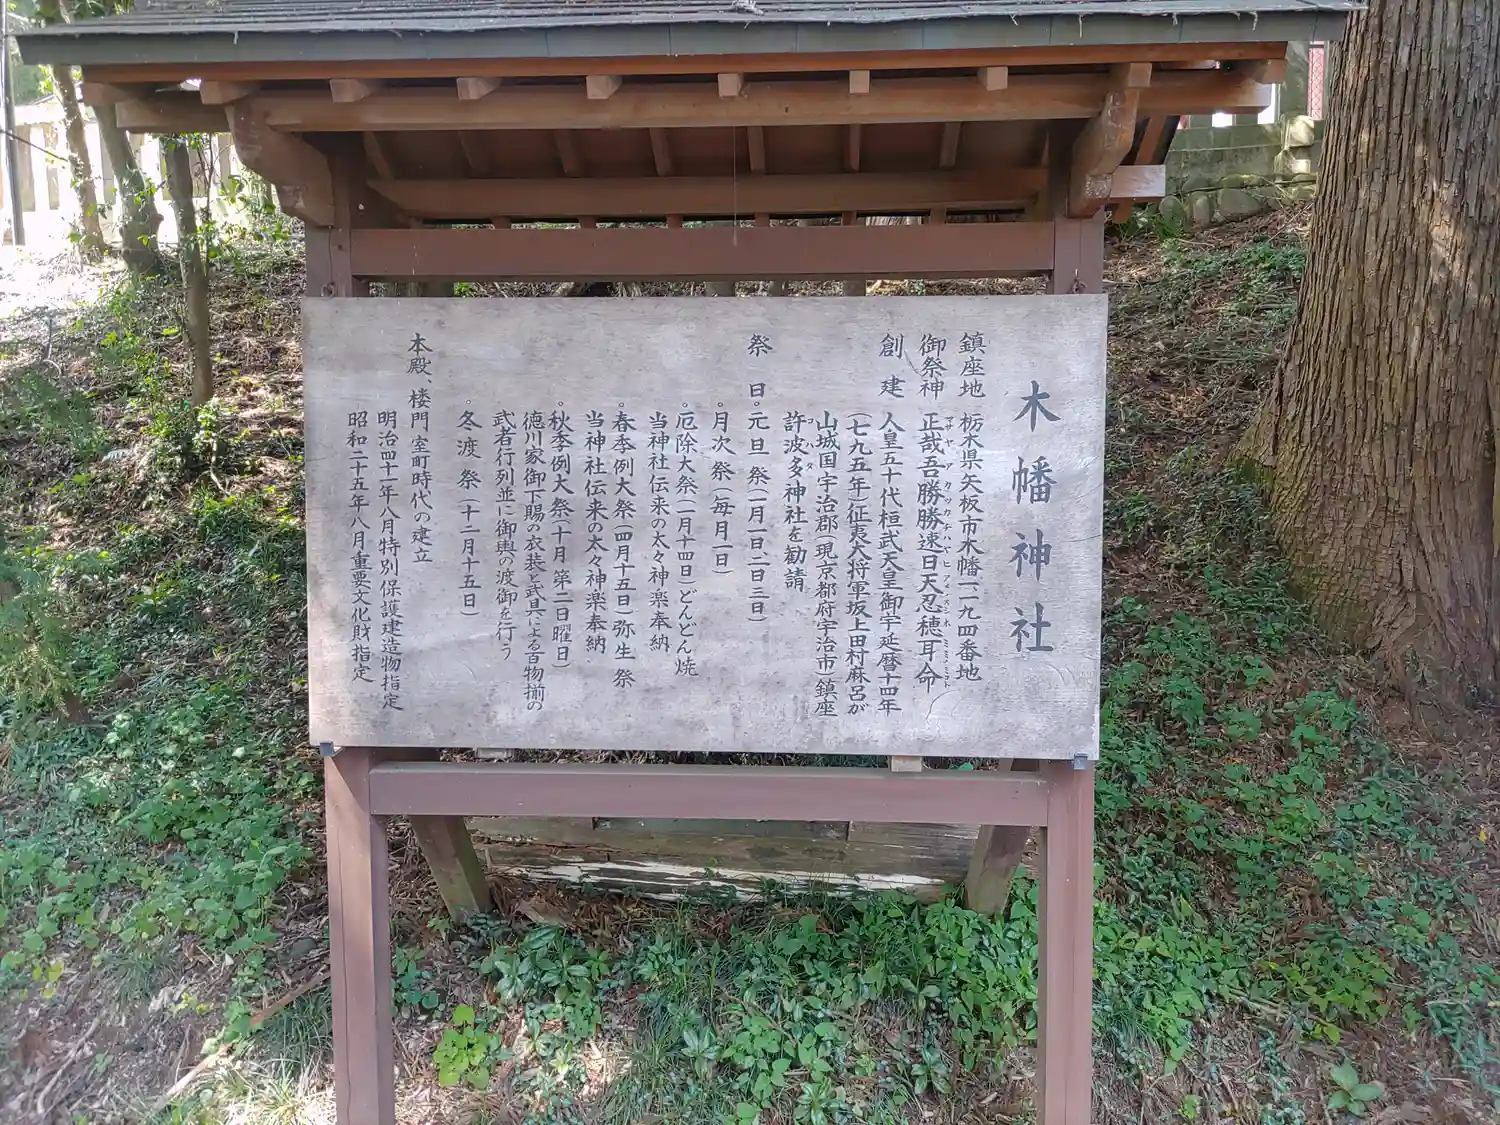 木幡神社
鎮座地 栃木県矢板市木幡一、一九四番地
御祭神 正哉吾勝勝速日天忍穂耳命
マサヤアカツカチハヤヒアメノオシホミミノミコト
創建 人皇五十代桓武天皇御宇延暦十四年
(七九五年)征夷大将軍坂上田村麻呂が
山城国宇治郡(現京都府宇治市)鎮座
許波多神社を勧請
コハタ
祭日 。元旦祭(一月一日二日三日)
。月次祭(毎月一日)
。厄除大祭(一月十四日)どんどん焼
当神社伝来の太々神楽奉納
。春季例大祭(四月十五日)弥生祭
当神社伝来の太々神楽奉納
。秋季例大祭(十月第二日曜日)
徳川家御下賜の衣裁と武具による百物揃の
武者行列並に御輿の渡御を行う
。冬渡祭(十二月十五日)
本殿、楼門 室町時代の建立
明治四十一年八月特別保護建造物指定
昭和二十五年八月重要文化財指定